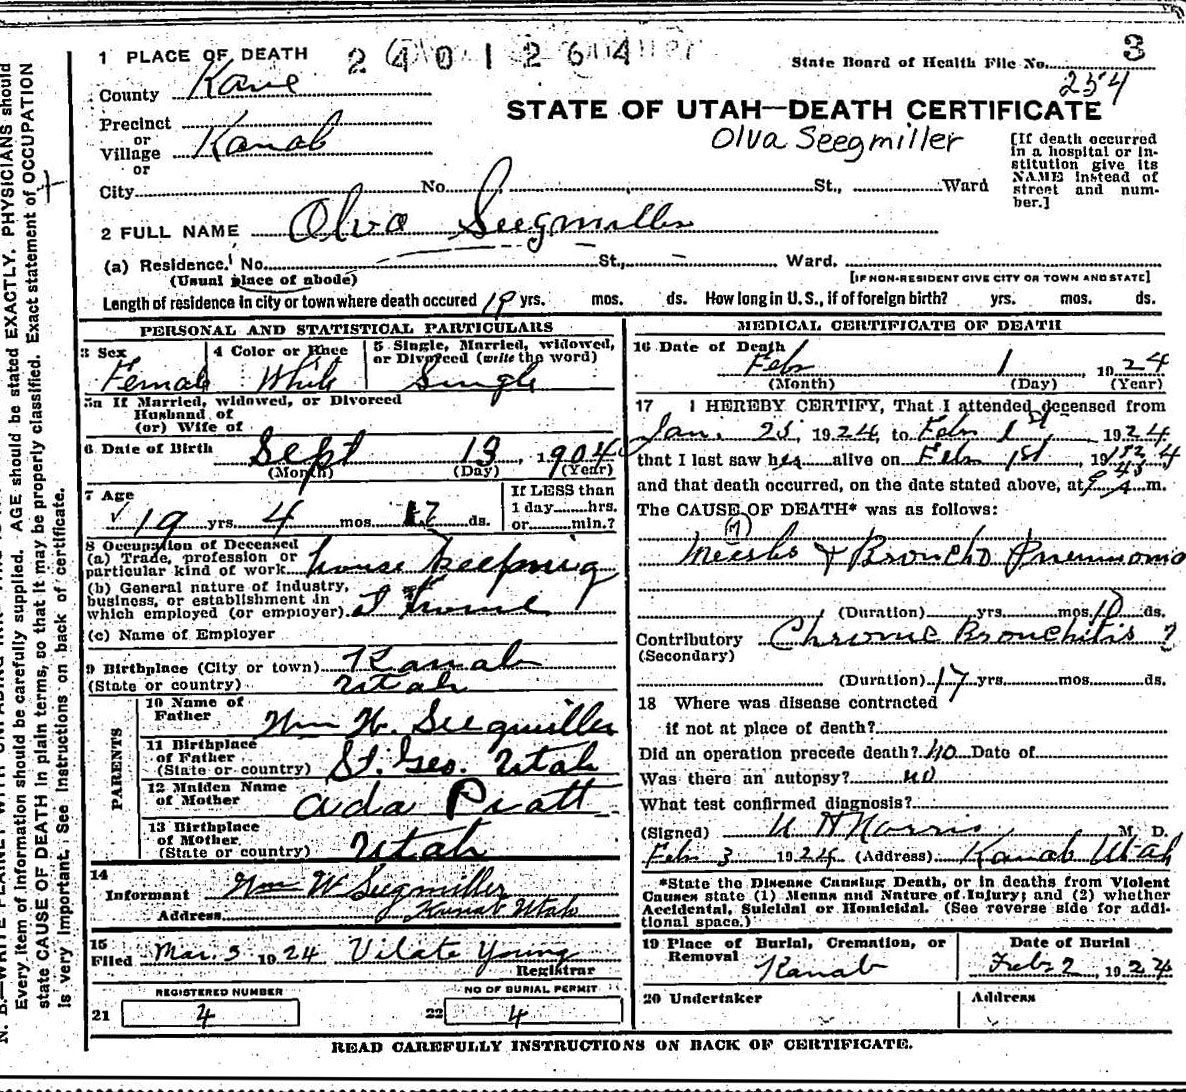 1 PLACE OF DEATH 2401264
State Board of Health File No. 3
254
County Kane
STATE OF UTAH—DEATH CERTIFICATE
Olva Seegmiller
Precinct
or
Village Kanab
or
City No. St., Ward
[If death occurred
in a hospital or in-
stitution give its
NAME instead of
street and num-
ber.]
2 FULL NAME Olva Seegmiller
(a) Residence. No. St., Ward.
(Usual place of abode) [IF NON-RESIDENT GIVE CITY OR TOWN AND STATE]
Length of residence in city or town where death occured 19 yrs. mos. ds. How long in U. S., if of foreign birth? yrs. mos. ds.
PERSONAL AND STATISTICAL PARTICULARS
3 Sex Female
4 Color or Race White
5 Single, Married, widowed,
or Divorced (write the word)
Single
5a If Married, widowed, or Divorced
Husband of
(or) Wife of
6 Date of Birth Sept 13, 1904
(Month) (Day) (Year)
7 Age
19 yrs. 4 mos. 17 ds.
If LESS than
1 day hrs.
or min.?
8 Occupation of Deceased
(a) Trade, profession or
particular kind of work house keeping
(b) General nature of industry,
business, or establishment in
which employed (or employer) at home
(c) Name of Employer
9 Birthplace (City or town) Kanab
(State or country) Utah
PARENTS
10 Name of
Father Wm W. Seegmiller
11 Birthplace
of Father
(State or country) St. Geo. Utah
12 Maiden Name
of Mother Ada Pratt
13 Birthplace
of Mother
(State or country) Utah
14
Informant Wm W Seegmiller
Address Kanab Utah
15
Filed Mar. 3 1924 Vilate Young
Registrar
REGISTERED NUMBER
21 4
NO OF BURIAL PERMIT
22 4
MEDICAL CERTIFICATE OF DEATH
16 Date of Death
Feb 1, 1924
(Month) (Day) (Year)
17 I HEREBY CERTIFY, That I attended deceased from
Jan. 25, 1924, to Feb 1st, 1924
that I last saw her alive on Feb 1st, 19
and that death occurred, on the date stated above, at m.
The CAUSE OF DEATH* was as follows:
(7)
Measles & Broncho Pneumonia
(Duration) yrs. mos. 10 ds.
Contributory Chronic Bronchitis ?
(Secondary)
(Duration) 17 yrs. mos. ds.
18 Where was disease contracted
if not at place of death?
Did an operation precede death? no Date of
Was there an autopsy? no
What test confirmed diagnosis?
(Signed) Norris M. D.
Feb 3 1924 (Address) Kanab Utah
*State the Disease Causing Death, or in deaths from Violent
Causes state (1) Means and Nature of Injury; and (2) whether
Accidental, Suicidal or Homicidal. (See reverse side for addi-
tional space.)
19 Place of Burial, Cremation, or
Removal
Kanab
Date of Burial
Feb 2, 1924
20 Undertaker
Address
READ CAREFULLY INSTRUCTIONS ON BACK OF CERTIFICATE.
Every item of information should be carefully supplied. AGE should be stated EXACTLY. PHYSICIANS should
state CAUSE OF DEATH in plain terms, so that it may be properly classified. Exact statement of OCCUPATION
is very important. See Instructions on back of certificate.